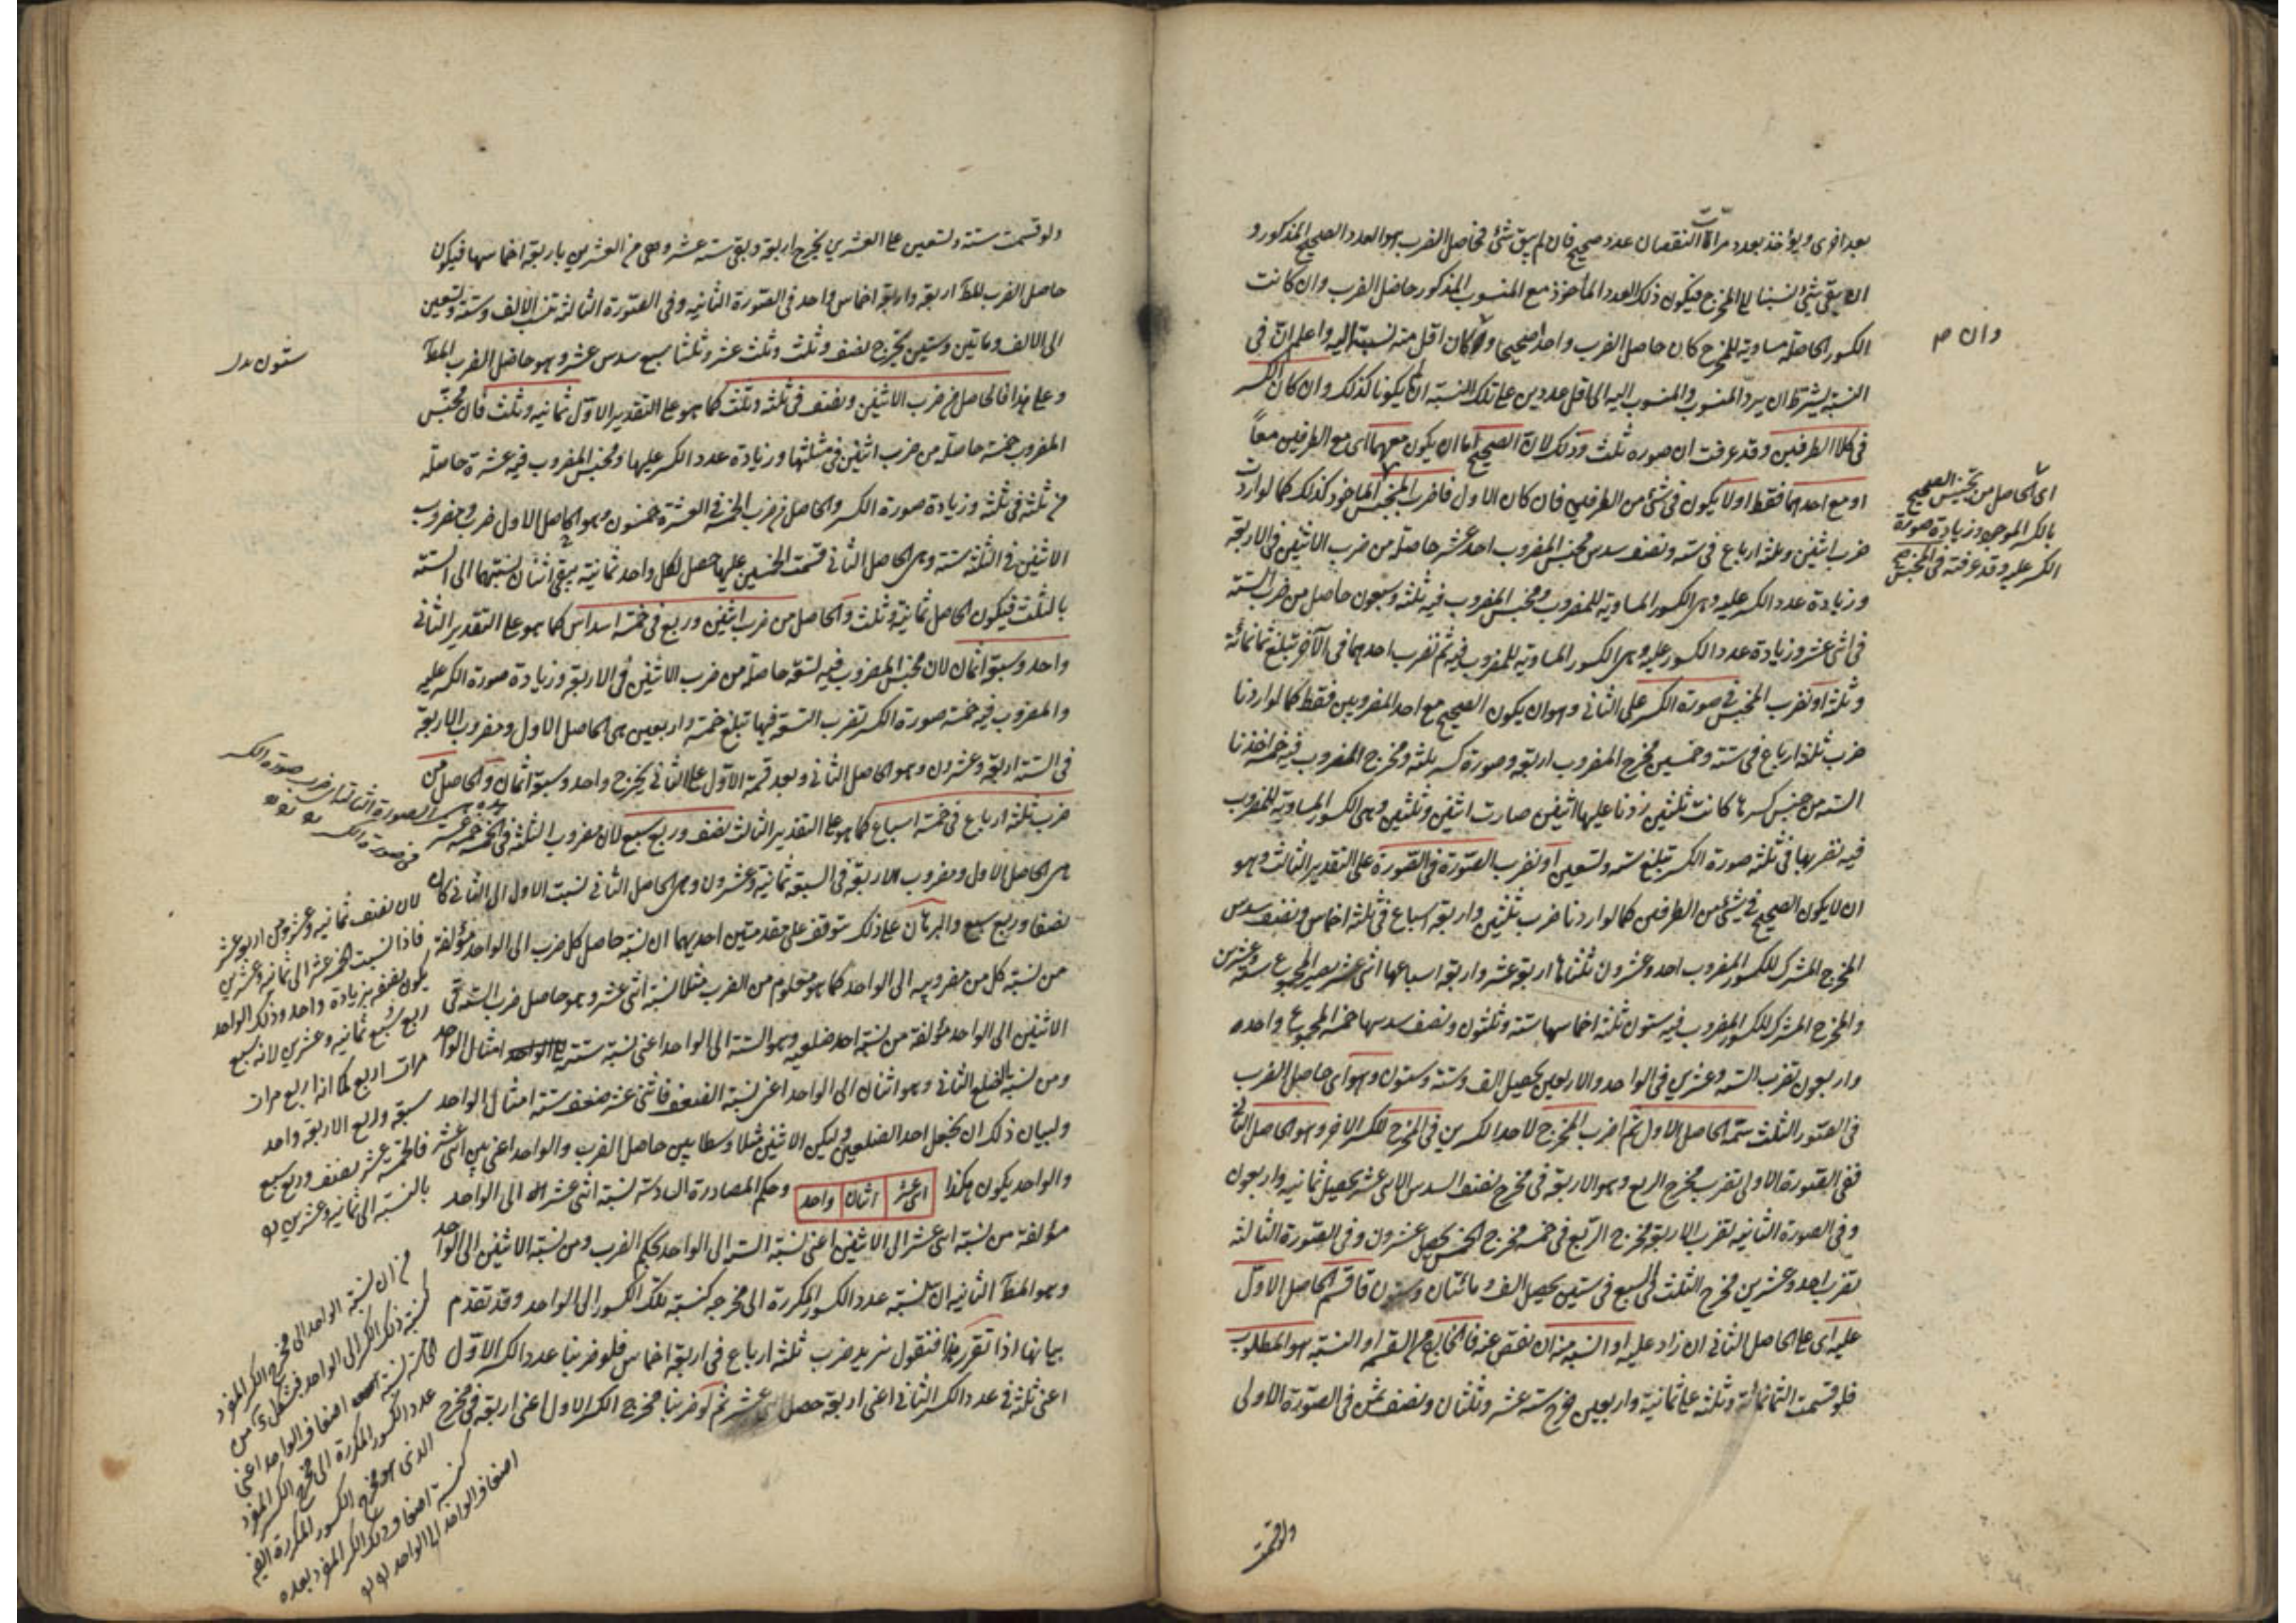 بعد اخرى ويؤخذ بعدد مرات النقصان عدد صحيح فان لم يبق شئ فحاصل الضرب هو العدد الصحيح المذكور و
ان بقى شئ نسبنا الى المخرج فيكون ذلك العدد المأخوذ مع المنسوب المذكور حاصل الضرب وان كانت
الكسور الحاصلة مساوية للمخرج كان حاصل الضرب واحدا صحيحا و كان اقل منه نسبته اليه واعلم ان فى
وان ص
النسبة يشترط ان يرد المنسوب والمنسوب اليه الى اقل عددين على تلك النسبة ان لم يكونا كذلك وان كان الكسر
فى كلا الطرفين وقد عرفت ان صوره ثلث وذلك لان الصحيح اما ان يكون معهما اى مع الطرفين معاً
او مع احدهما فقط اولا يكون فى شئ من الطرفين فان كان الاول فاضرب المجنس الماخوذ كذلك كما لو اردت
اى الحاصل من تجنيس الصحيح
بالكسر الموجود وزيادة صورة
الكسر عليه وقد عرفته فى المجنس
ضرب اثنين وثلثة ارباع فى ستة ونصف سدس مجنس المضروب احد عشر حاصلة من ضرب الاثنين فى الاربعة
وزيادة عدد الكسر عليه وهى الكسور المساوية للمضروب ومجنس المضروب فيه ثلثة وسبعون حاصل من ضرب الستة
فى اثنى عشر وزيادة عدد الكسور عليه وهى الكسور المساوية للمضروب فيه ثم نضرب احدهما فى الآخر تبلغ ثمانمائة
وثلثة او نضرب المجنس فى صورة الكسر على الثانى وهو ان يكون الصحيح مع احد المضروبين فقط كما لو اردنا
ضرب ثلثة ارباع فى ستة وخمسين مخرج المضروب اربعة وصورة كسره ثلثة ومخرج المضروب فيه خمسة اخذنا
الستة من جنس كسرها كانت ثلثين زدنا عليها اثنين صارت اثنين وثلثين وهى الكسور المساوية للمضروب
فيه نضربها فى ثلثة صورة الكسر تبلغ ستة وتسعين او نضرب الصورة فى الصورة على التقدير الثالث وهو
ان لا يكون الصحيح فى شئ من الطرفين كما لو اردنا ضرب ثلثين واربعة اسباع فى ثلثة اخماس ونصف سدس
المخرج المشترك للكسور المضروب احد وعشرون ثلثاها اربعة عشر واربعة اسباعها اثنى عشر يصير المجموع ستة وعشرين
والمخرج المشترك للكسور المضروب فيه ستون ثلثة اخماسها ستة وثلثون ونصف سدسها خمسة المجموع واحد
واربعون نضرب الستة وعشرين فى الواحد والاربعين يحصل الف وستة وستون وهو اى حاصل الضرب
فى الصور الثلث ستمه الحاصل الاول ثم اضرب المخرج لاحد الكسرين فى المخرج للكسر الاخر وهو الحاصل الثانى
ففى الصورة الاولى نضرب مخرج الربع وهو الاربعة فى مخرج نصف السدس الاثنى عشر يحصل ثمانية واربعون
وفى الصورة الثانية نضرب الاربعة مخرج الربع فى خمسة مخرج الخمس يحصل عشرون وفى الصورة الثالثة
نضرب احد وعشرين مخرج الثلث فى السبع فى ستين يحصل الف و مائتان وستون فاقسم الحاصل الاول
عليه اى على الحاصل الثانى ان زاد عليه او انسبه منه ان نقص عنه فالخارج من القسمة او النسبة هو المطلوب
فلو قسمت الثمانمائة وثلثة على ثمانية واربعين خرج ستة عشر وثلثان ونصف ثمن فى الصورة الاولى
ولو قسمت
ولو قسمت ستة وتسعين على العشرين يخرج اربعة وبقى ستة عشر وهى من العشرين باربعة اخماسها فيكون
حاصل الضرب المط اربعة واربعة اخماس واحد فى الصورة الثانية وفى الصورة الثالثة تنسب الالف وستة وتسعين
ستون بدل
الى الالف ومأتين وستين تخرج نصف وثلث وثلث عشر وثلثا سبع سدس عشر وهو حاصل الضرب المط
وعلى هذا فالحاصل من ضرب الاثنين ونصف فى ثلثة وثلث كما هو على التقدير الاول ثمانية وثلث فان مجنس
المضروب خمسة حاصلة من ضرب اثنين فى مثلثها وزيادة عدد الكسر عليها ومجنس المضروب فيه عشرة حاصلة
من ثلثة فى ثلثة وزيادة صورة الكسر والحاصل من ضرب الخمسة فى العشرة خمسون وهو الحاصل الاول ضرب ومضروب
الاثنين فى الثلثة ستة وهى الحاصل الثانى قسمت الخمسين عليها حصل لكل واحد ثمانية يبقى اثنان نسبتهما الى الستة
بالثلث فيكون الحاصل ثمانية وثلث والحاصل من ضرب اثنين وربع فى خمسة اسداس كما هو على التقدير الثانى
واحد وسبعة اثمان لان مجنس المضروب فيه تسعة حاصلة من ضرب الاثنين فى الاربعة وزيادة صورة الكسر عليه
والمضروب فيه خمسة صورة الكسر تضرب التسعة فيها تبلغ خمسة واربعين هى الحاصل الاول ومضروب الاربعة
فى الستة اربعة وعشرون وهو الحاصل الثانى وبعد قسمة الاول على الثانى يخرج واحد وسبعة اثمان والحاصل من
ضرب ثلثة ارباع فى خمسة اسباع كما هو على التقدير الثالث نصف وربع سبع لان مضروب الثلثة فى الخمسة خمسة عشر
هذه هى الصورة الثالثة اى ضرب صورة الكسر
فى صورة الكسر
هى الحاصل الاول ومضروب الاربعة فى السبعة ثمانية وعشرون وهى الحاصل الثانى نسبت الاول الى الثانى كان
نصفا وربع سبع والبرهان على ذلك يتوقف على مقدمتين احديهما ان نسبة حاصل كل ضرب الى الواحد مؤلفة
من نسبة كل من مضروبيه الى الواحد كما هو معلوم من الضرب مثلا نسبة اثنى عشر وهو حاصل ضرب الستة فى
الاثنين الى الواحد مؤلفة من نسبة احد ضلعيه وهو الستة الى الواحد اعنى نسبة ستة امثال الواحد
ومن نسبة الضلع الثانى وهو اثنان الى الواحد اعنى نسبة الضعف فاثنى عشر ضعف ستة امثال الواحد
ولبيان ذلك ان نجعل احد الضلعين وليكن الاثنين مثلا وسطا بين حاصل الضرب والواحد اعنى بين اثنى عشر
والواحد يكون هكذا اثنى عشر اثنان واحد وحكم المصادرة السادسة نسبة اثنى عشر الى الواحد
مؤلفة من نسبة اثنى عشر الى الاثنين اعنى نسبة الستة الى الواحد بحكم الضرب ومن نسبة الاثنين الى الواحد
وهو المط الثانية ان نسبة عدد الكسور المكررة الى مخرجه كنسبة تلك الكسور الى الواحد وقد تقدم
بيانها اذا تقرر هذا فنقول نريد ضرب ثلثة ارباع فى اربعة اخماس فلو ضربنا عدد الكسر الاول
اعنى ثلثة فى عدد الكسر الثانى اعنى اربعة حصل اثنى عشر ثم لو ضربنا مخرج الكسر الاول اعنى اربعة فى مخرج
لان نصف ثمانية وعشرين اربعة عشر
فاذا نسبت الخمسة عشر الى ثمانية وعشرين
يكون نصفه بزيادة واحد وذلك الواحد
ربع سبع ثمانية وعشرين لانه سبع
مرات اربع كما انه اربع مرات
سبعة وربع الاربعة واحد
فالخمسة عشر نصف وربع سبع
بالنسبة الى ثمانية وعشرين
من ان نسبة الواحد الى مخرج الكسر المفرد
كنسبة ذلك الكسر الى الواحد
نسبة اضعاف الواحد اعنى
عدد الكسور المكررة الى مخرج الكسر المفرد
الذى هو مخرج الكسور المكررة
كنسبة اضعاف ذلك الكسر المفرد بعدد
اضعاف الواحد الى الواحد